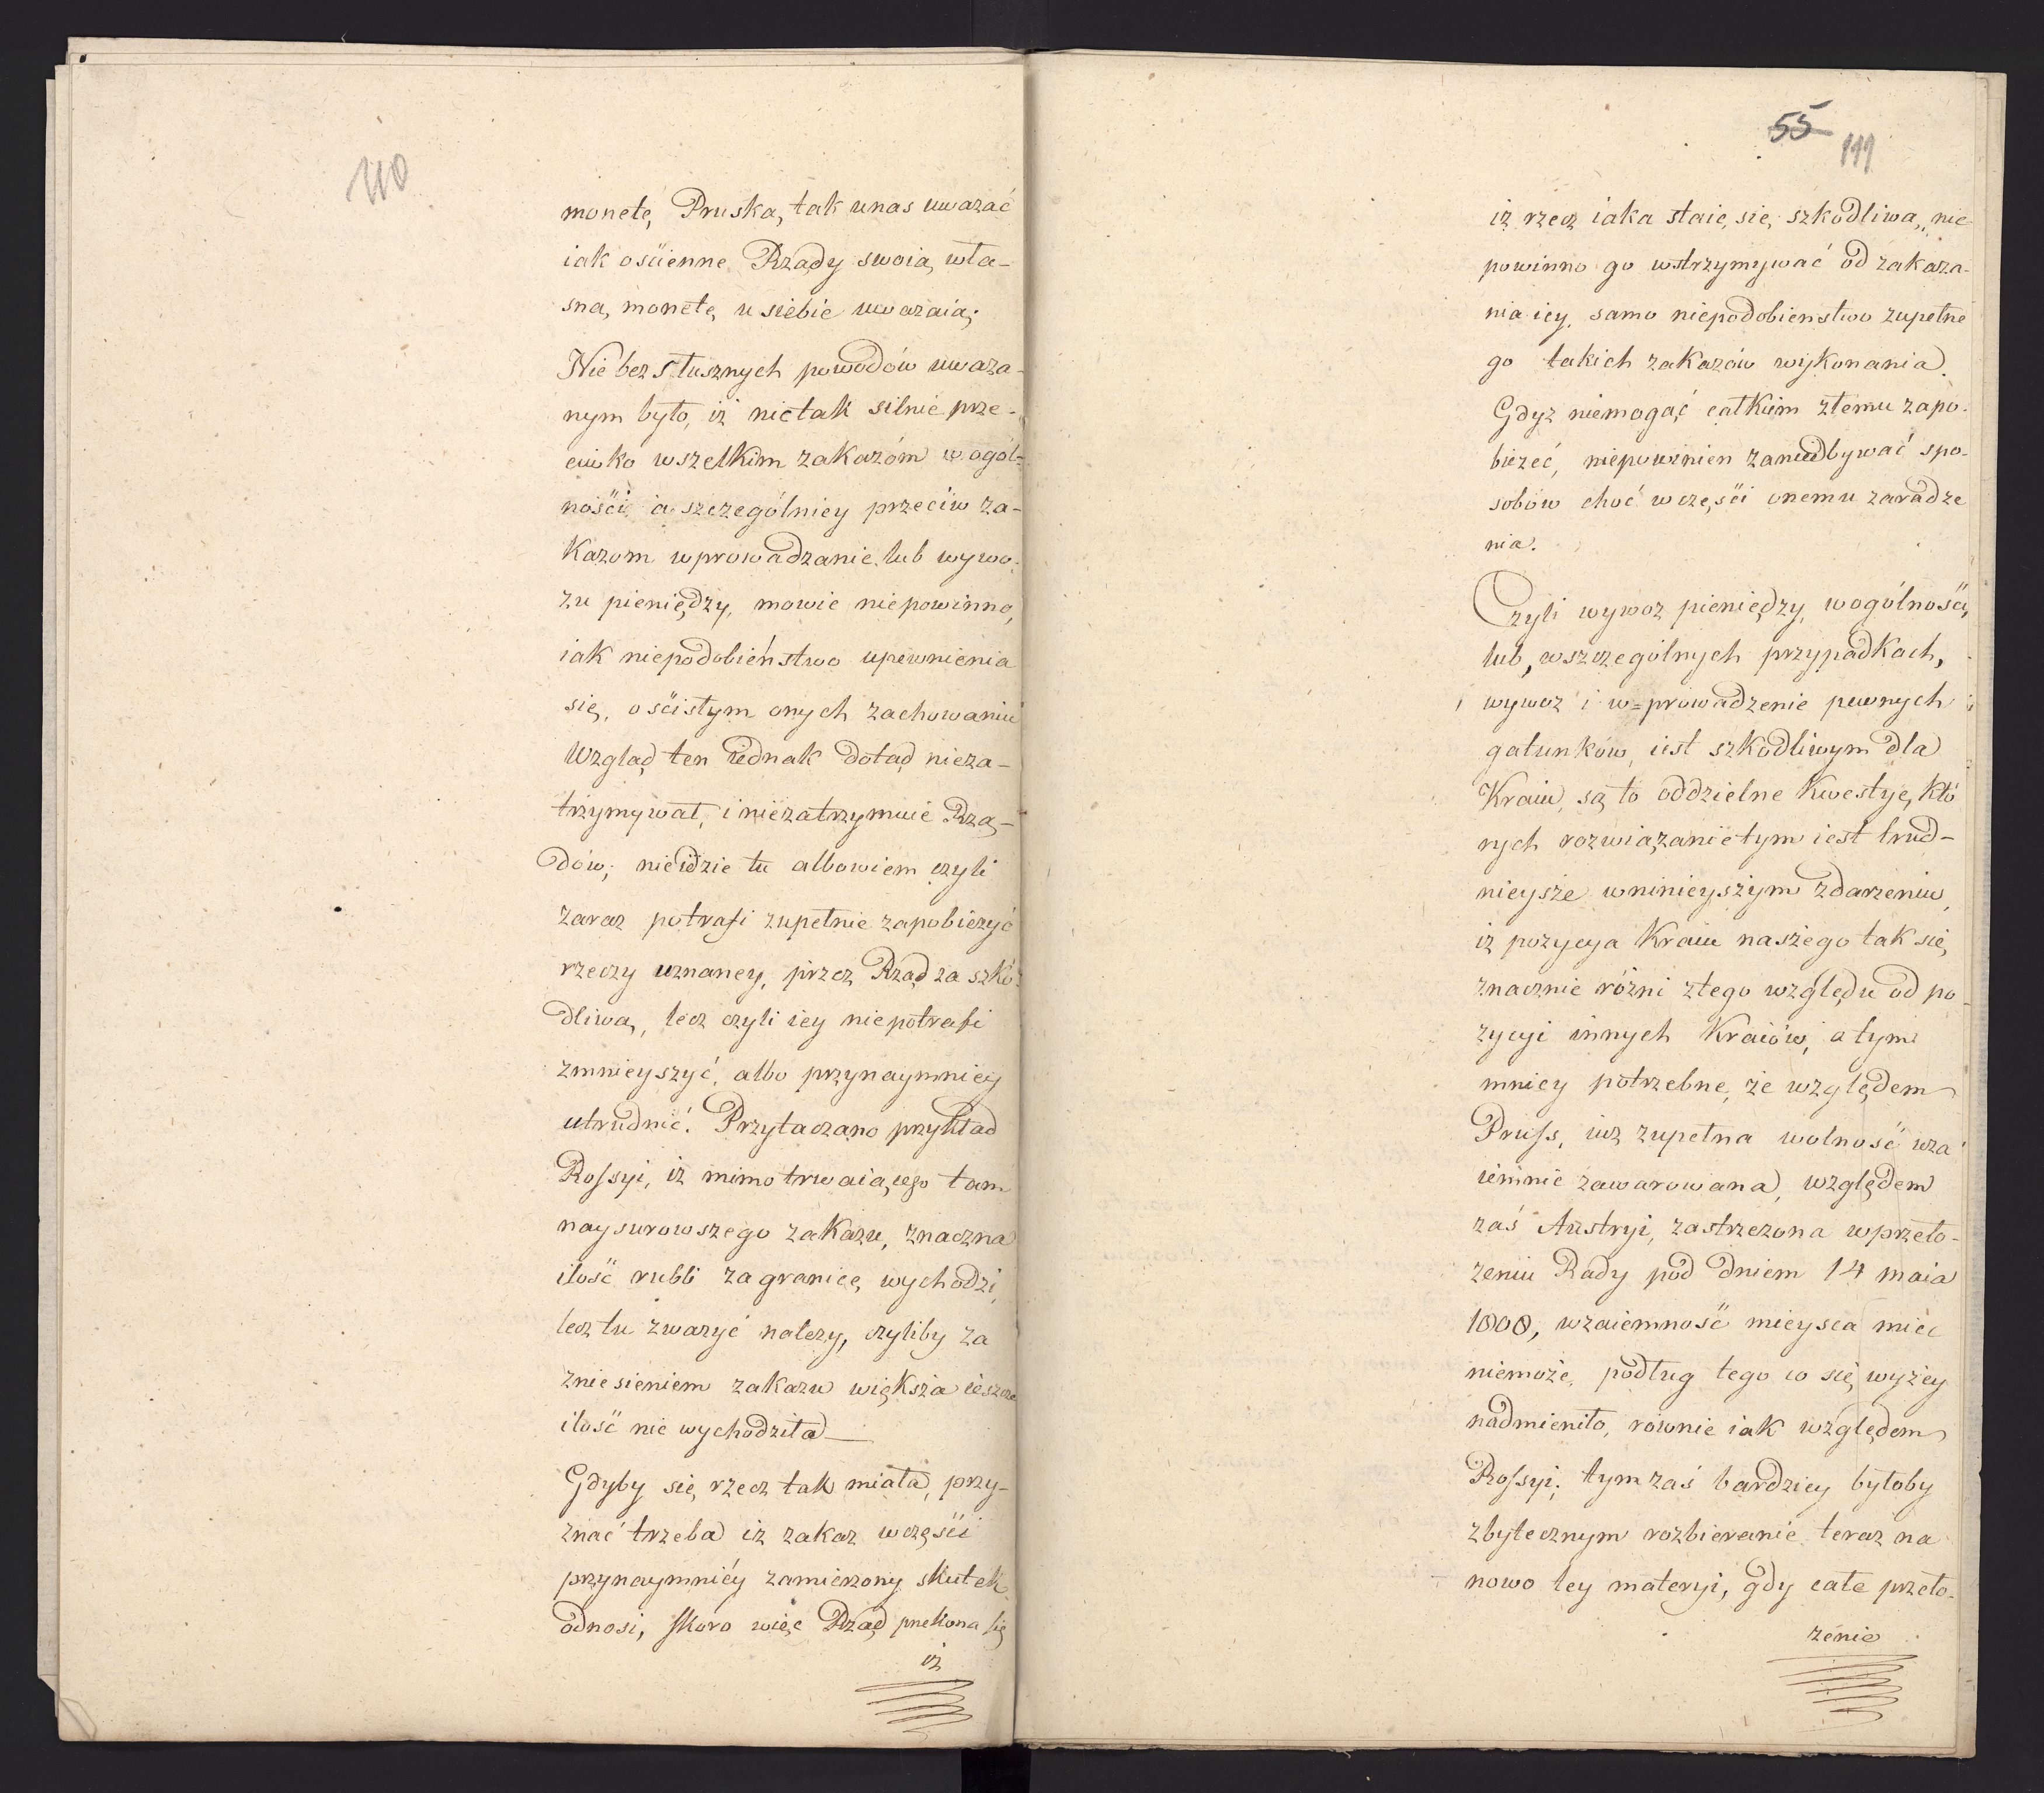 110
monetę Pruską, tak unas uważać
iak ościenne Rządy swoią wła-
sną monetę u siebie uważaią;
Nie bez słusznych powodów uważa-
nym było, iż nic tak silnie prze-
ciwko wszelkim zakazóm w ogól-
ności a szczególniey przeciw za-
kazom wprowadzanie lub wywo-
zu pieniędzy, mowie niepowinno,
iak niepodobieństwo upewnienia
się, o ścisłym onych zachowaniu
Wzgląd ten iednak dotąd nieza-
trzymywał, i niezatrzymuie Rzą-
dów; nieidzie tu albowiem czyli
zaraz potrafi zupełnie zapobieżyć
rzeczy uznaney, przez Rząd za szko-
dliwą, lecz czyli iey niepotrafi
zmnieyszyć, albo przynaymniey
utrudnić. Przytaczano przykład
Rossyi, iż mimo trwaiącego tam
naysurowszego zakazu, znaczna
ilość rubli za granicę wychodzi,
lecz tu zważyć należy, czyliby za
zniesieniem zakazu większa ieszcze
ilość nie wychodziła—
Gdyby się rzecz tak miała, przy-
znać trzeba iż zakaz w części
przynaymniéy zamierzony skutek
odnosi, skoro więc Rząd przekona się
iż
55
111
iż rzecz iaka staie się szkodliwą, nie
powinno go wstrzymywać od zakaza-
nia iey, samo niepodobienstwo zupełne
go takich zakazów wykonania.
Gdyż niemogąc całkiem złemu zapo-
bieżeć, niepowinien zaniedbywać spo-
sobów choć w części onemu zaradze
nia.
Czyli wywoz pieniędzy, wogólności,
lub, wszczególnych przypadkach,
wywoz i w=prowadzenie pewnych
gatunków, iest szkodliwym dla
Kraiu, są to oddzielne kwestye, któ
rych rozwiązanie tym iest trud-
nieysze w ninieyszym zdarzeniu,
iż pozycya Kraiu naszego tak się
znacznie różni z tego względu od po-
zycyi innych Kraiów, a tym
mniey potrzebne, że względem
Pruss, iuż zupełna wolność wza
iemnie zawarowana, względem
zaś Austryi, zastrzeżona w przeło-
żeniu Rady pod dniem 14 maia
1808, wzaiemność mieysca mieć
niemoże, podług tego co się wyżey
nadmieniło, równie iak względem
Rossyi; tym zaś bardziey byłoby
zbytecznym rozbieranie teraz na
nowo tey materyi, gdy całe przeło-
żenie